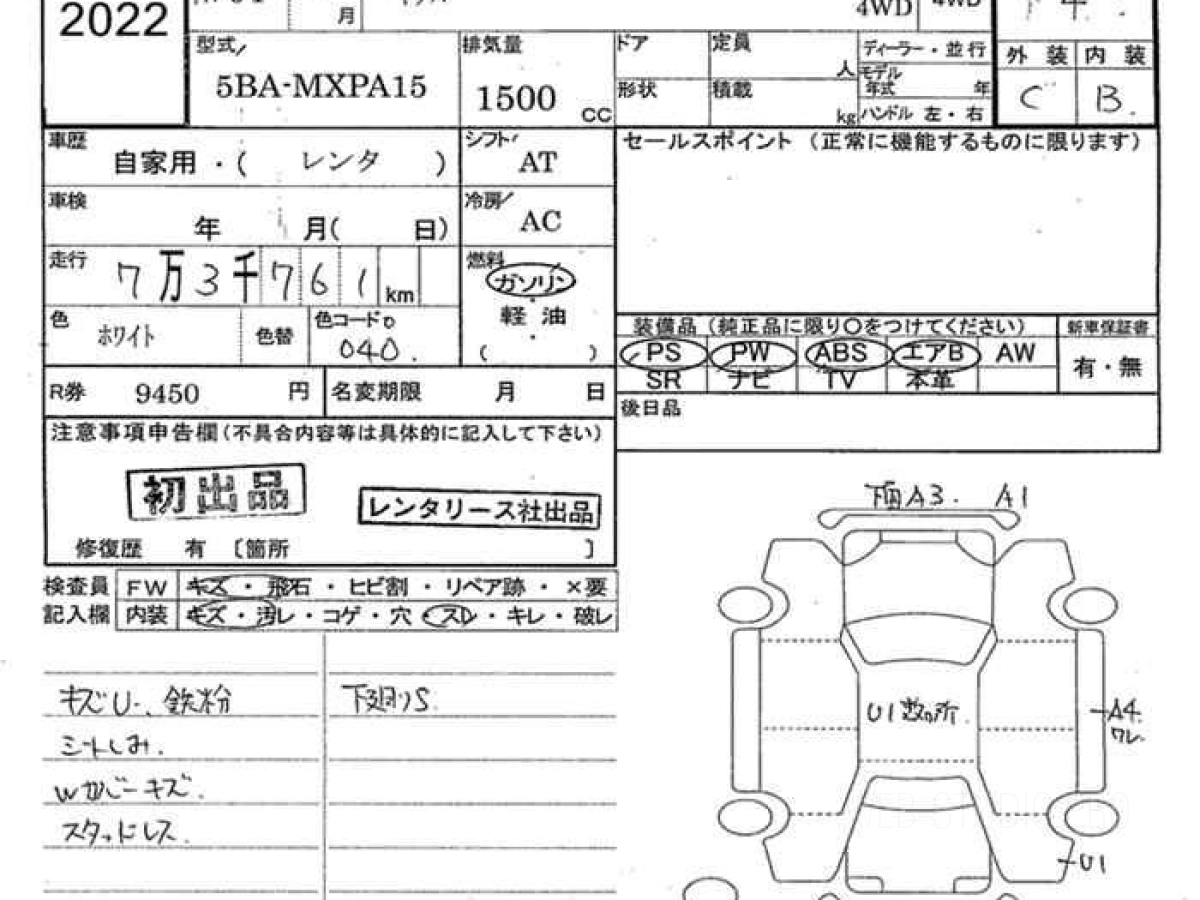 2022
月
4WD
4WD
4
型式
5BA-MXPA15
排気量
1500
CC
ドア
定員
人
形状
積載
kg
ディーラー・並行
モデル年式
年
ハンドル 左・右
外装
内装
C
B
車歴
自家用・( レンタ )
シフト
AT
車検
年 月( 日)
冷房
AC
走行
7万3千761km
燃料
ガソリン
軽油
( )
色
ホワイト
色替
色コードo
040.
R券
9450
円
名変期限 月 日
セールスポイント (正常に機能するものに限ります)
装備品 (純正品に限り〇をつけてください)
新車保証書
PS PW ABS エアB AW
有・無
SR ナビ TV 本革
後日品
注意事項申告欄(不具合内容等は具体的に記入して下さい)
初出品
レンタリース社出品
修復歴 有 〔箇所 〕
検査員 FW キズ・飛石・ヒビ割・リペア跡・×要
記入欄 内装 キズ・汚レ・コゲ・穴・スレ・キレ・破レ
キズU、鉄粉
下廻りS.
シートしみ.
Wカバーキズ.
スタッドレス.
A3. A1
U1数ヶ所.
A4.
ワレ.
U1